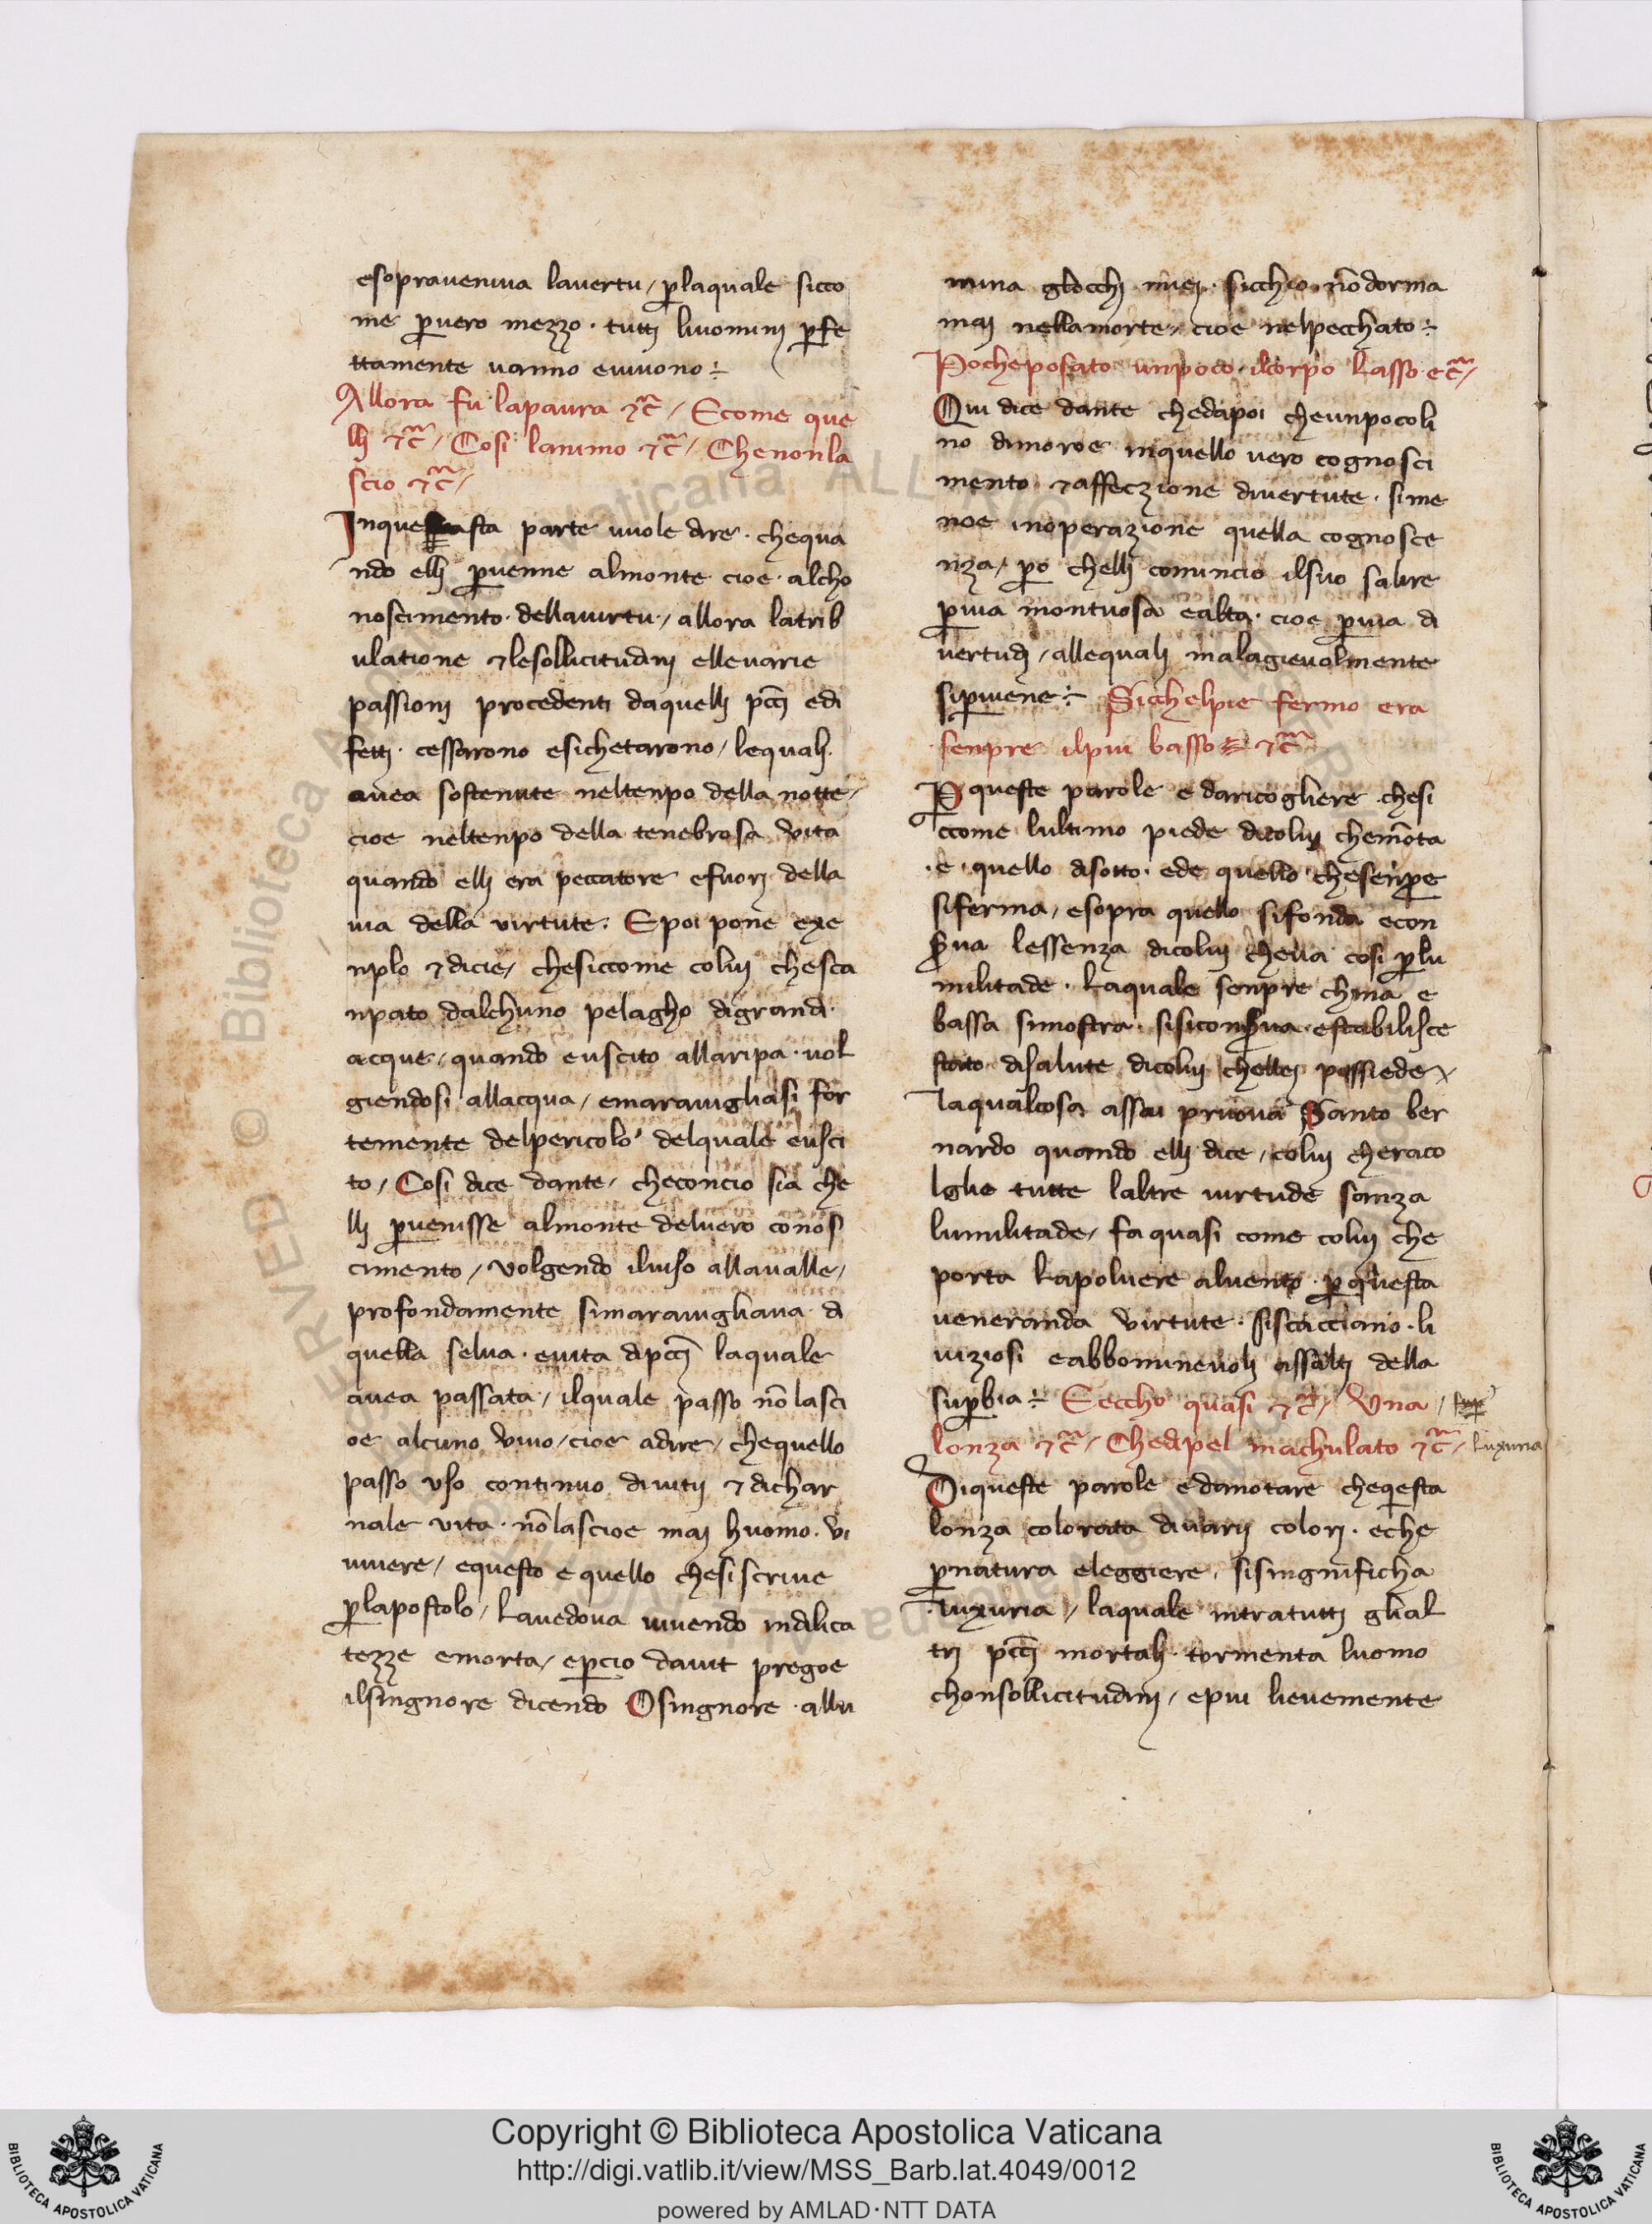 esopraueniua lauertu / p̱laquale sicco
me p̱uero mezzo · tuttj liuominj p̱fe
ttamente uanno euiuono ÷
Allora fu lapaura ⁊c̃ / Ecome que
llj ⁊c̃ / Cosi lanimo ⁊c̃ / Chenonla
scio ⁊c̃ /
Inque sta parte uuole dire · chequa
ndo ellj p̱uenne almonte cioe · alcho
noscimento · dellauirtu · / allora latrib
ulatione ⁊lesollicitudinj elleuarie
passionj procedenti daquellj pc̃cj edi
fettj · cessarono esichetarono / lequalj ·
auea sostenute neltenpo della notte /
cioe neltenpo della tenebrosa vita
quando ellj era peccatore efuorj della
uia della virtute · Epoi pone exe
nplo ⁊dicie / chesiccome coluj chesca
npato dalchuno pelagho digrandi ·
acque / quando euscito allaripa · uol
giendosi allacqua / emarauigliasi for
temente delpericolo delquale eusci
to / Cosi dice dante / checoncio sia che
llj p̱uenisse almonte deluero conos
cimento / volgendo iluiso allaualle /
profondamente simarauigliaua di
quella selua · euita dipc̃cj laquale
auea passata / ilquale passo nõlasci
oe alcuno viuo / cioe adire / chequello
passo vso continuo diuitij ⁊dichar
nale vita · nõlascioe maj huomo · vi
uuere / equesto e quello chesiscriue
p̱lapostolo / Lauedoua uiuendo indilica
tezze emorta / ep̱cio dauit pregoe
ilsingnore dicendo Osingnore · allu
mina gliocchj miej · sicchio nõdorma
maj nellamorte / cioe nelpecchato ÷
Pocheposato unpoco · ilcorpo Lasso ec̃ /
Qui dice dante chedapoi cheunpocoli
no dimoroe inquello uero cognosci
mento ⁊affeczione diuertute · sime
noe inoperazione quella cognosce
nza / p̱o chellj comincio ilsuo salire
p̱uia montuosa ealta · cioe p̱uia di
uertudj / allequalj malagieuolmente
sip̱uiene ÷ Sichelpie fermo era
senpre ilpiu basso ⁊c̃
P̱ queste parole e daricogliere · chesi
ccome lultimo piede dicoluj chemõta
· e · quello disotto · ede quello chesenp̱e
siferma / esopra quello sifonda econ
s̱ua lessenza dicoluj cheua cosi p̱lu
militade · Laquale senpre china e
bassa simostra · sisicons̱ua · estabilisce
stato disalute dicoluj chellej possiede /
laqualcosa assai pruoua Santo ber
nardo quando ellj dice / coluj cheraco
lglie tutte laltre uirtude sanza
lumilitade / fa quasi come coluj che
porta Lapoluere aluento · p̱questa
ueneranda virtute · siscacciano · li
uiziosi eabbomineuolj assaltj della
sup̱bia ÷ Eeccho quasi ⁊c̃ / Vna /
lonza ⁊c̃ / Chedipel machulato ⁊c̃ / Luxuria
Diqueste parole edanotare chequesta
lonza colorata diuarij colorj · eche
p̱natura eleggiere · sisingnificha
luxuria / laquale intratuttj glial
trj pc̃cj mortalj · tormenta luomo
chonsollicitudinj / epiu lieuemente
Copyright © Biblioteca Apostolica Vaticana
http://digi.vatlib.it/view/MSS_Barb.lat.4049/0012
powered by AMLAD·NTT DATA
BIBLIOTECA APOSTOLICA VATICANA
BIBLIOTECA APOSTOLICA VATICANA